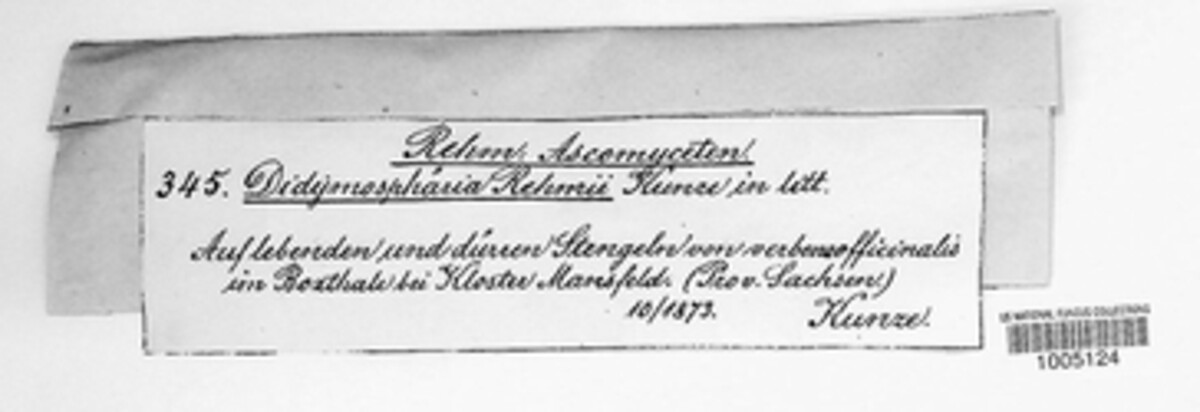 Rehm, Ascomyceten
345. Didymosphäria Rehmii Kunze in litt.
Auf lebenden und dürren Stengeln von verbena officinalis
im Bozthale bei Kloster Mansfeld. (Prov. Sachsen)
10/1873. Kunze.
US NATIONAL FUNGUS COLLECTIONS
1005124